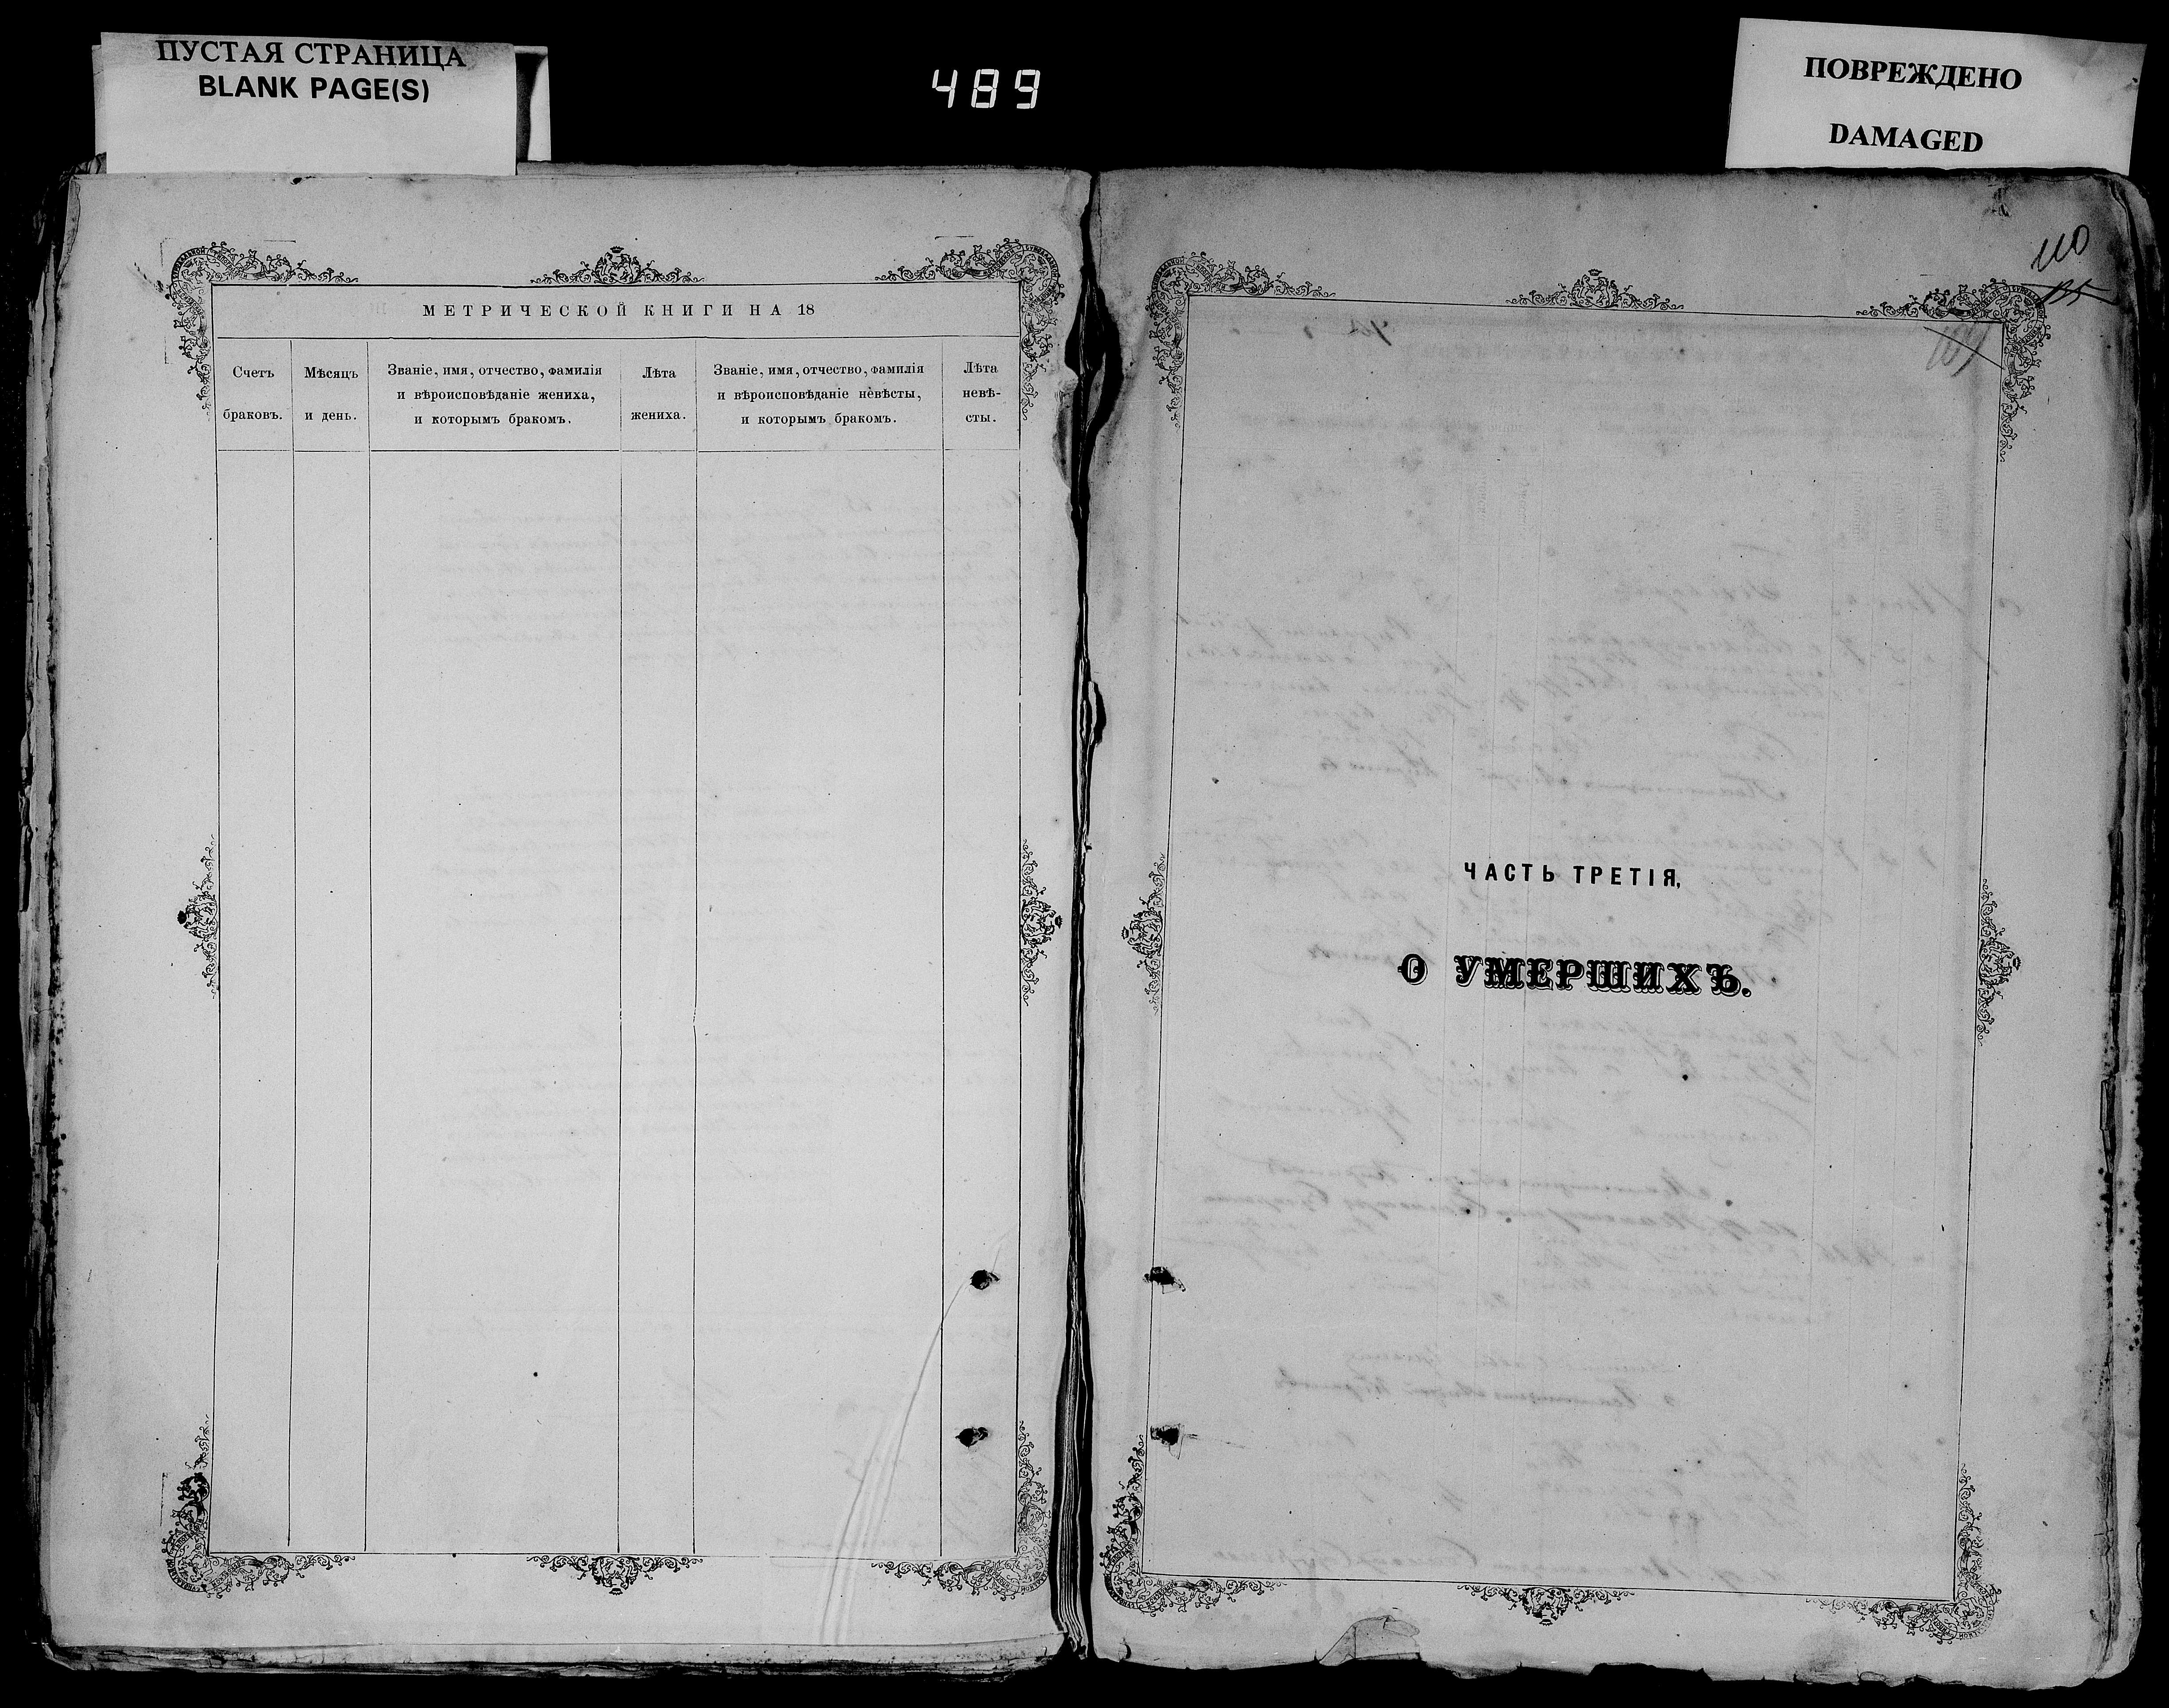 ПУСТАЯ СТРАНИЦА
BLANK PAGE(S)
489
ПОВРЕЖДЕНО
DAMAGED
МЕТРИЧЕСКОЙ КНИГИ НА 18
Счетъ
браковъ.
Мѣсяцъ
и день.
Званіе, имя, отчество, фамилія
и вѣроисповѣданіе жениха,
и которымъ бракомъ.
Лѣта
жениха.
Званіе, имя, отчество, фамилія
и вѣроисповѣданіе невѣсты,
и которымъ бракомъ.
Лѣта
невѣ-
сты.
110
109
ЧАСТЬ ТРЕТІЯ,
О УМЕРШИХЪ.